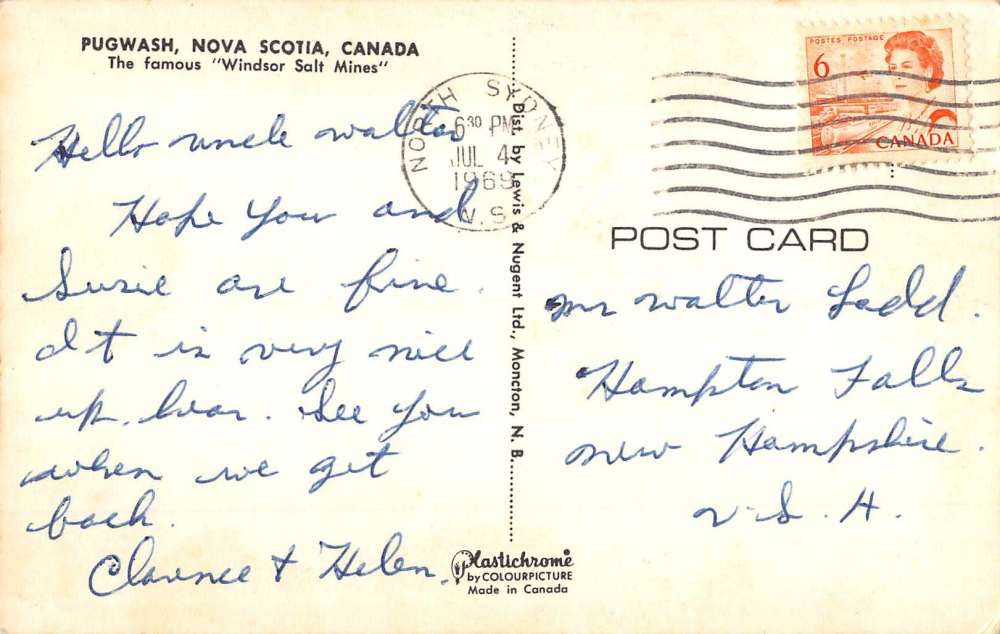 PUGWASH, NOVA SCOTIA, CANADA
The famous "Windsor Salt Mines"
Hello uncle walter
Hope you and
Susie are fine.
It is very nice
up hear. See you
when we get
back.
Clarence & Helen.
NORTH SYDNEY
6 30 PM
JUL 4
1969
N.S.
Dist. by Lewis & Nugent Ltd., Moncton, N. B.
Plastichrome
by COLOURPICTURE
Made in Canada
POSTES POSTAGE
6
CANADA
POST CARD
mr walter Ladd.
Hampton Falls
new Hampshire.
U.S.A.